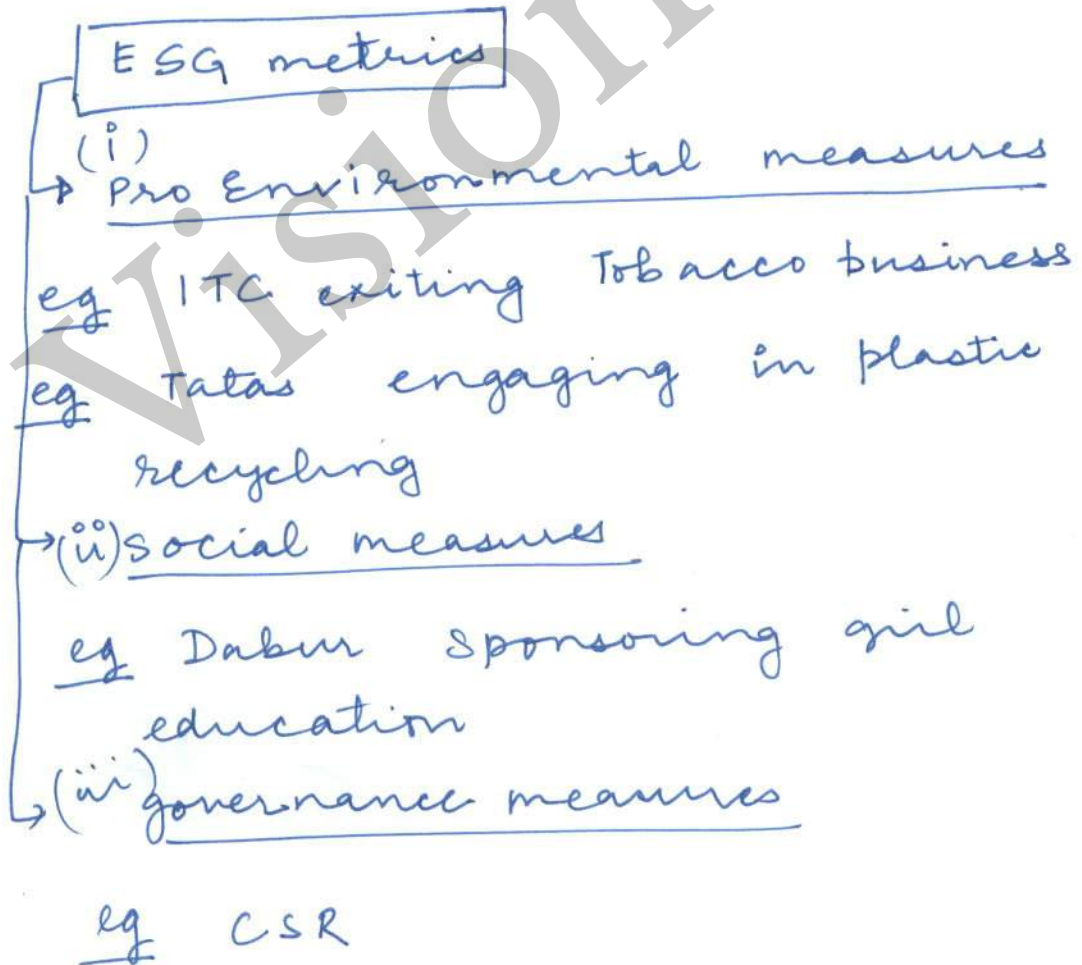 ESG metrics
(i)
Pro Environmental measures
eg ITC exiting Tobacco business
eg Tatas engaging in plastic
recycling
(ii) social measures
eg Dabur sponsoring girl
education
(iii) governance measures
eg CSR
Vision